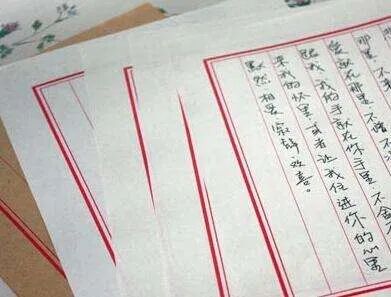 那里.不
爱就在那里.不增不
跟我.我的手就在你手里.不舍
来我的怀里.或者让我住进你的心里
默然.相爱.寂静.欢喜。